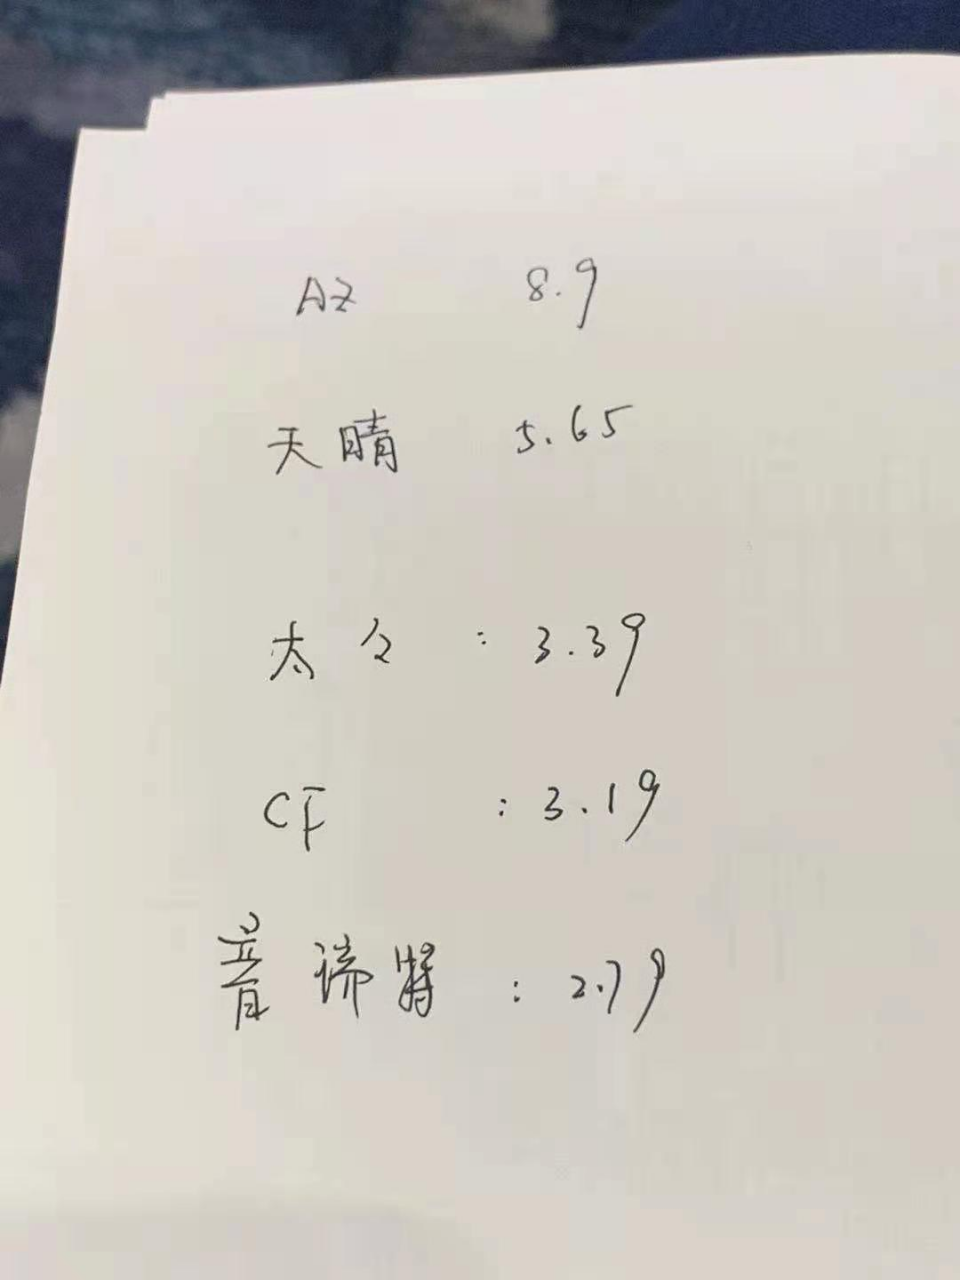 AZ 8.9
天晴 5.65
太公 : 3.39
CF : 3.19
普谛特 : 2.79